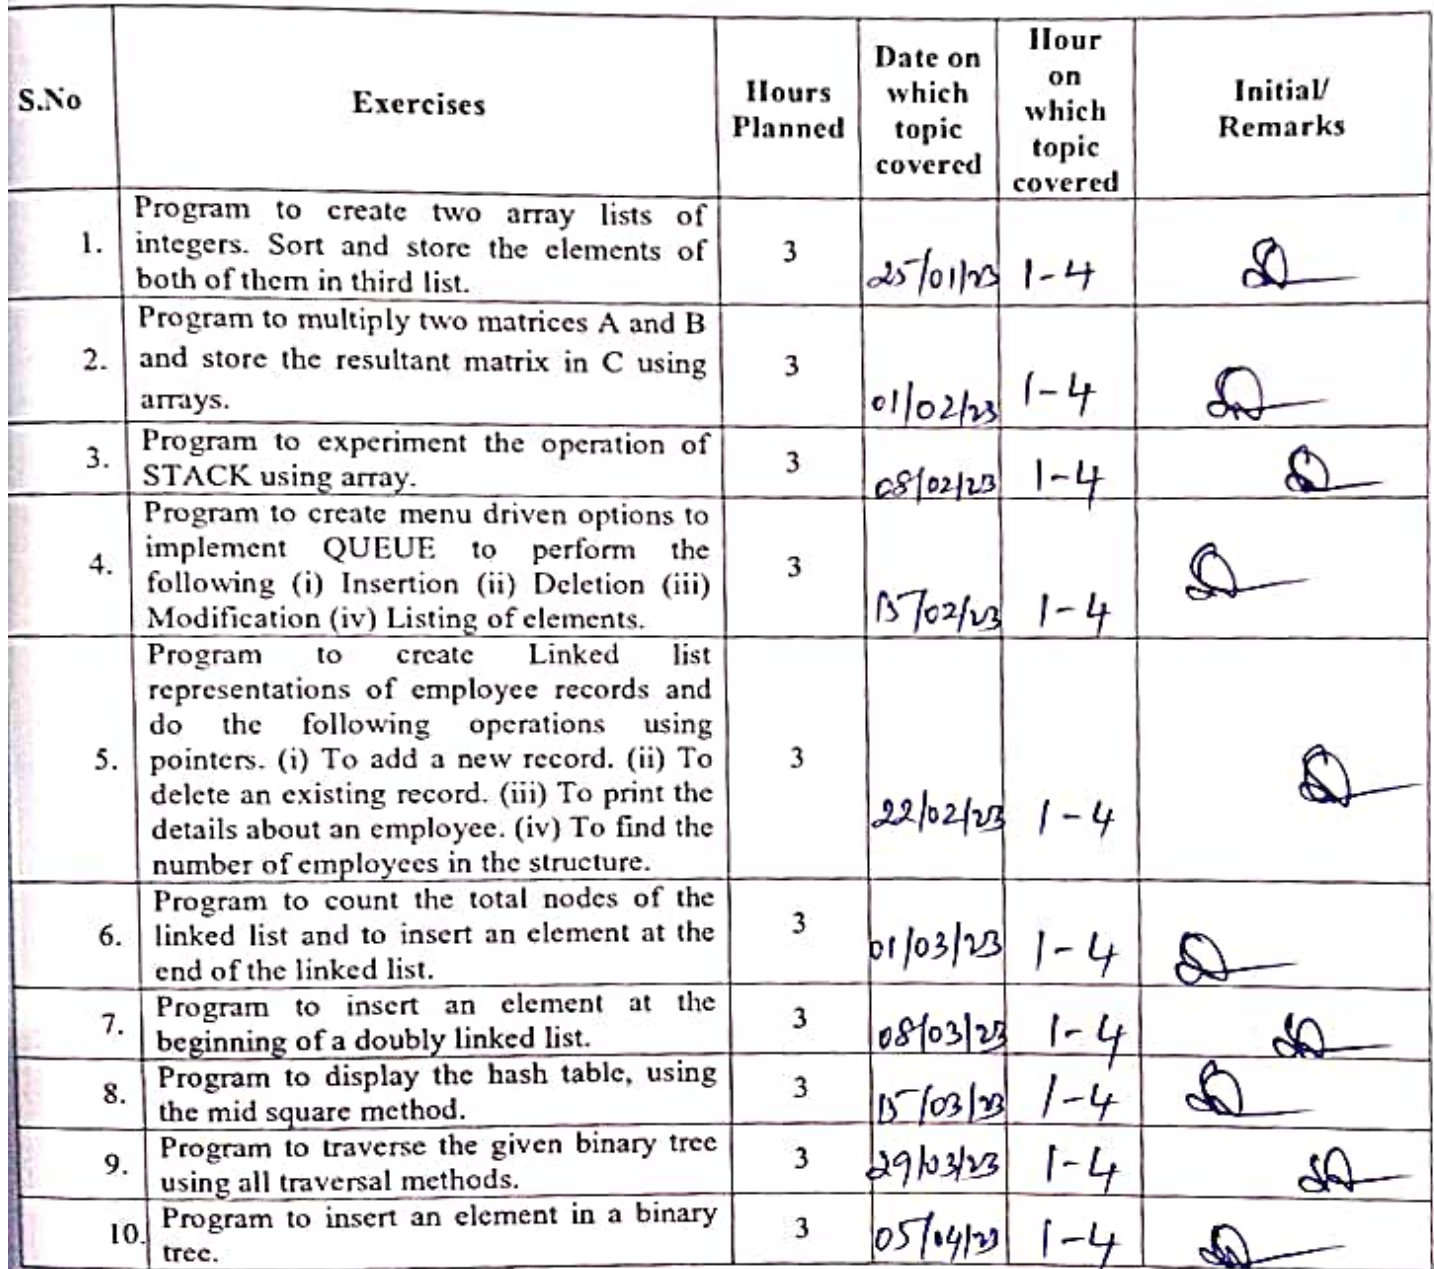 S.No Exercises Hours Planned Date on which topic covered Hour on which topic covered Initial/ Remarks
1. Program to create two array lists of
integers. Sort and store the elements of
both of them in third list.
3 25/01/23 1-4
2. Program to multiply two matrices A and B
and store the resultant matrix in C using
arrays.
3 01/02/23 1-4
3. Program to experiment the operation of
STACK using array.
3 08/02/23 1-4
4. Program to create menu driven options to
implement QUEUE to perform the
following (i) Insertion (ii) Deletion (iii)
Modification (iv) Listing of elements.
3 15/02/23 1-4
5. Program to create Linked list
representations of employee records and
do the following operations using
pointers. (i) To add a new record. (ii) To
delete an existing record. (iii) To print the
details about an employee. (iv) To find the
number of employees in the structure.
3 22/02/23 1-4
6. Program to count the total nodes of the
linked list and to insert an element at the
end of the linked list.
3 01/03/23 1-4
7. Program to insert an element at the
beginning of a doubly linked list.
3 08/03/23 1-4
8. Program to display the hash table, using
the mid square method.
3 15/03/23 1-4
9. Program to traverse the given binary tree
using all traversal methods.
3 29/03/23 1-4
10. Program to insert an element in a binary
tree.
3 05/04/23 1-4